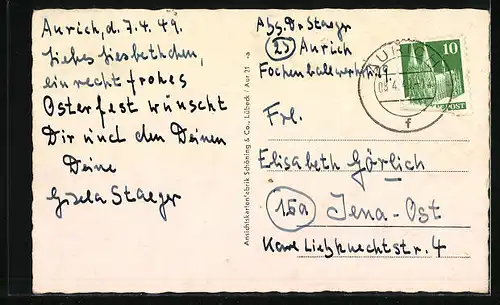 Aurich, d. 7.4.49.
Liebes Liesbethchen,
ein recht frohes
Osterfest wünscht
Dir und den Deinen
Deine
Gisela Staeger
Ansichtskartenfabrik Schöning & Co., Lübeck / Aur 21
Abs. Dr Staeger
(23) Aurich
10
f
Frl.
Elisabeth Görlich
(15a) Jena-Ost
Karl Liebknechtstr. 4